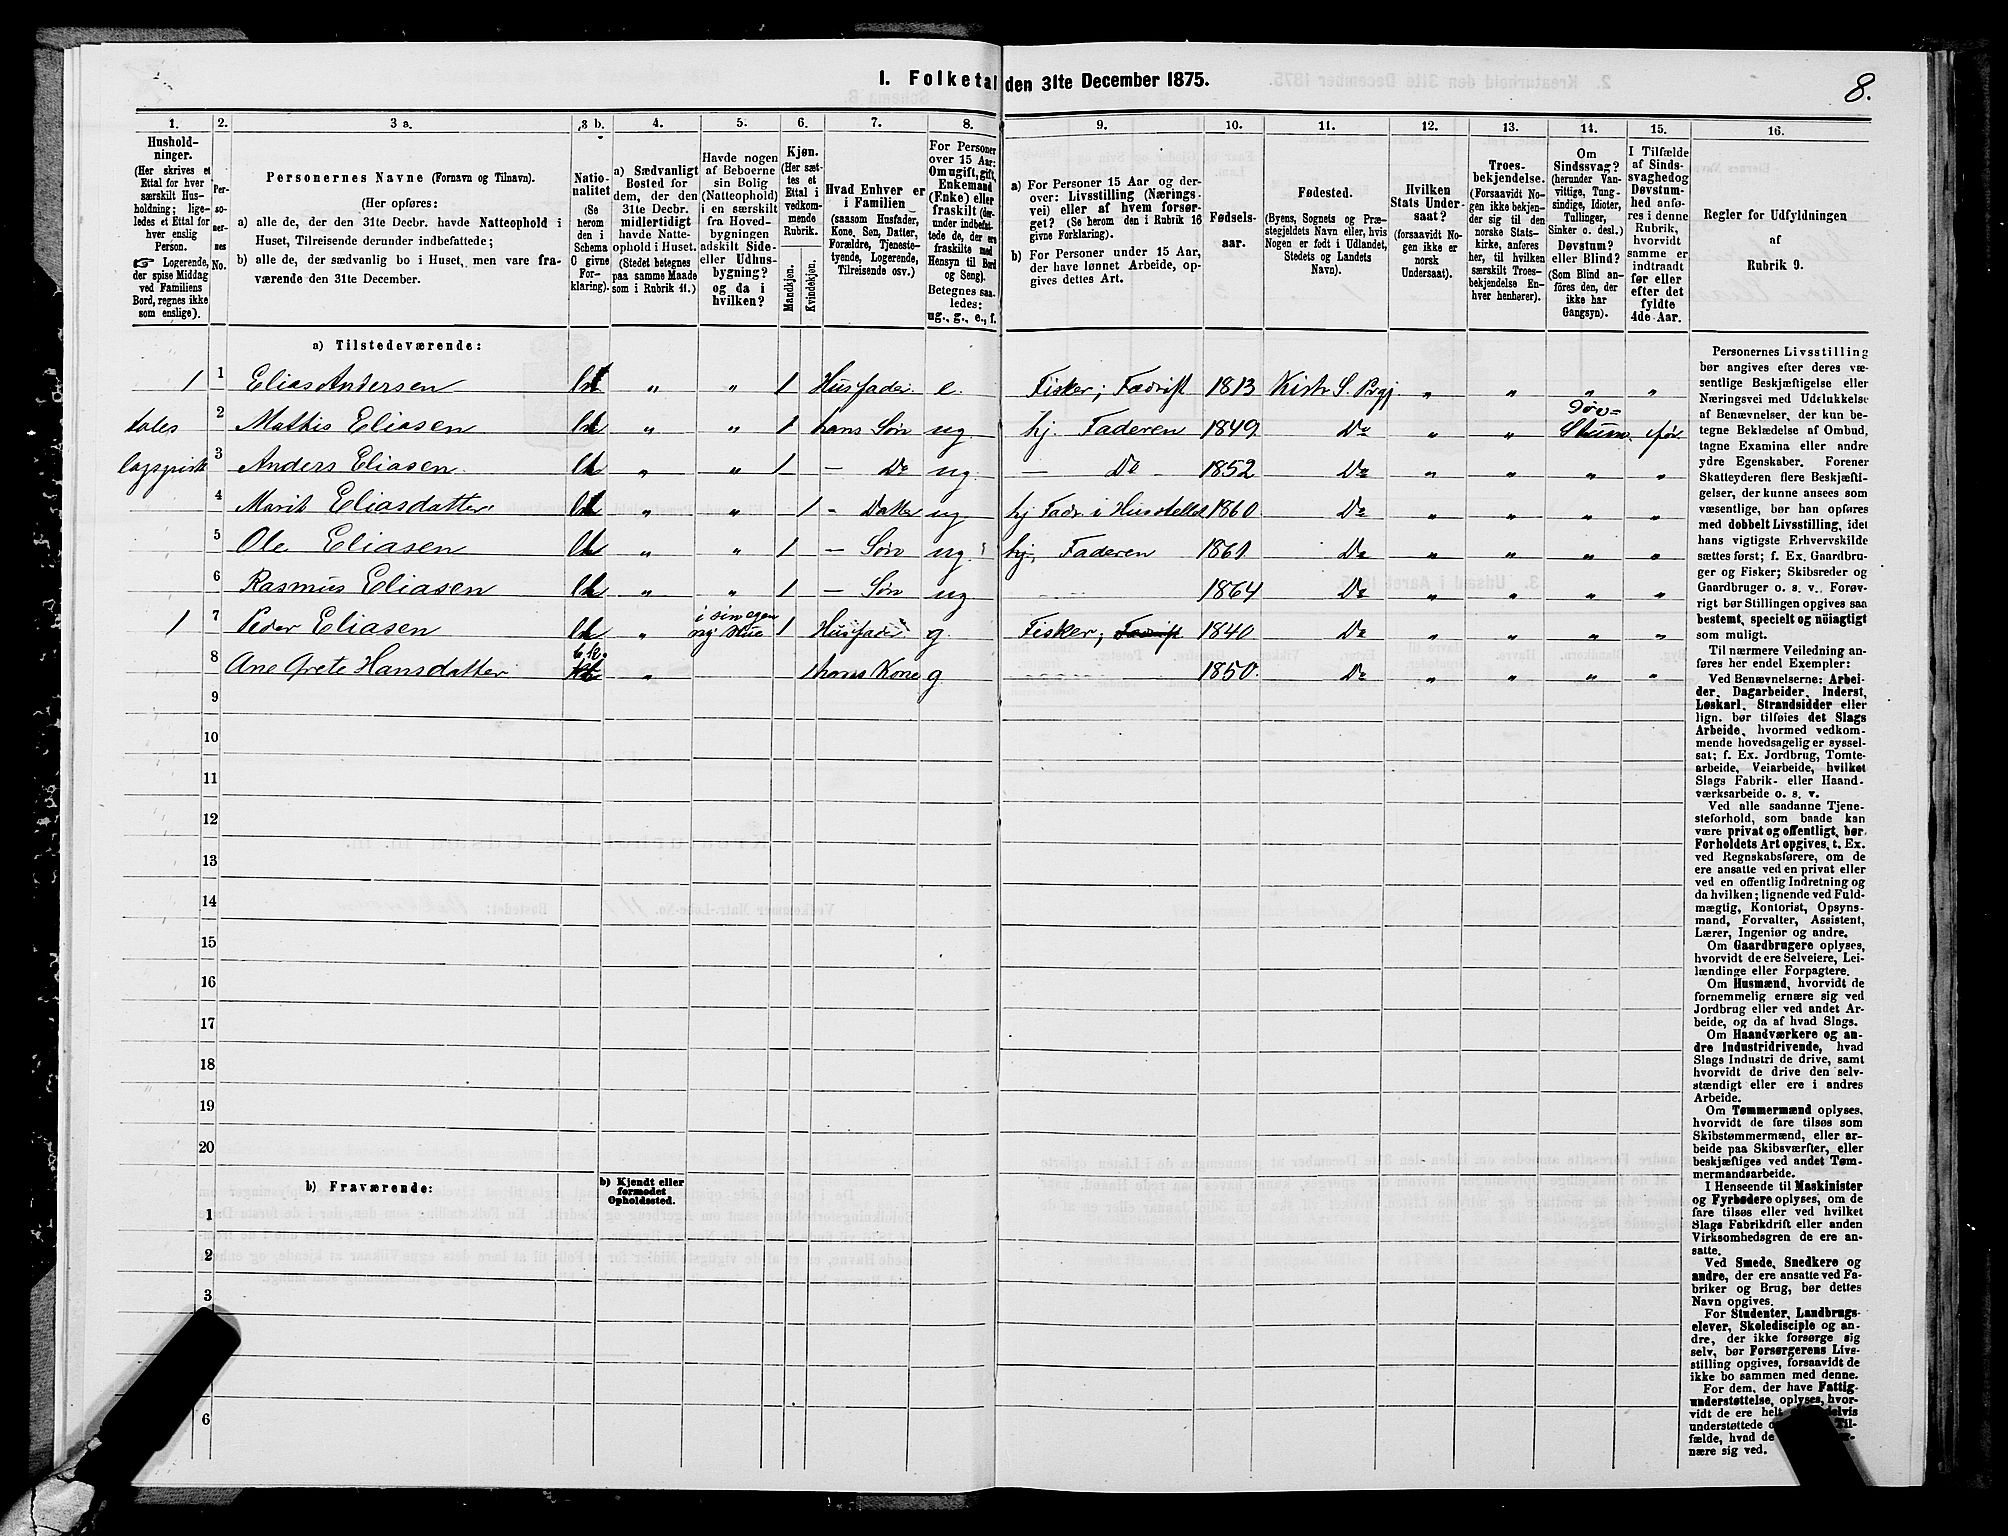 I. Folketal den 31te December 1875.
8.
1.
2.
3 a.
3 b.
4.
5.
6.
7.
8.
9.
10.
11.
12.
13.
14.
15.
16.
Hushold-
ninger.
(Her skrives et
Ettal for hver
særskilt Hus-
holdning; lige-
ledes et Ettal for
hver enslig
Person.
☞ Logerende,
der spise Middag
ved Familiens
Bord, regnes ikke
som enslige).
Per-
so-
ner-
nes
No.
Personernes Navne (Fornavn og Tilnavn).
(Her opføres:
a) alle de, der den 31te Decbr. havde Natteophold i
Huset, Tilreisende derunder indbefattede;
b) alle de, der sædvanlig bo i Huset, men vare fra-
værende den 31te December.
Natio-
nalitet
(Se
herom
den i
Schema
C givne
For-
klaring).
a) Sædvanligt
Bosted for
dem, der den
31te Decbr.
midlertidigt
havde Natte-
ophold i Huset.
(Stedet betegnes
paa samme Maade
som i Rubrik 11.)
Havde nogen
af Beboerne
sin Bolig
(Natteophold)
i en særskilt
fra Hoved-
bygningen
adskilt Side-
eller Udhus-
bygning?
og da i
hvilken?
Kjøn.
(Her sæt-
tes et
Ettal i
vedkom-
mende
Rubrik.
Mandkjøn.
Kvindekjøn.
Hvad Enhver er
i Familien
(saasom Husfader,
Kone, Søn, Datter,
Forældre, Tjeneste-
tyende, Logerende,
Tilreisende osv.)
For Personer
over 15 Aar:
Om ugift, gift,
Enkemand
(Enke) eller
fraskilt (der-
under indbefat-
tede de, der ere
fraskilte med
Hensyn til Bord
og Seng).
Betegnes saa-
ledes:
ug., g., e., f.
a) For Personer 15 Aar og der-
over: Livsstilling (Nærings-
vei) eller af hvem forsør-
get? (Se herom den i Rubrik 16
givne Forklaring).
b) For Personer under 15 Aar,
der have lønnet Arbeide, op-
gives dettes Art.
Fødsels-
aar.
Fødested.
(Byens, Sognets og Præ-
stegjeldets Navn eller, hvis
Nogen er født i Udlandet,
Stedets og Landets
Navn).
Hvilken
Stats Under-
saat?
(forsaavidt No-
gen ikke er
norsk
Undersaat).
Troes-
bekjendelse.
(Forsaavidt No-
gen ikke bekjen-
der sig til den
norske Stats-
kirke, anføres
her, til hvilken
særskilt Troes-
bekjendelse En-
hver henhører).
Om
Sindssvag?
(herunder Van-
vittige, Tung-
sindige, Idioter,
Tullinger,
Sinker o. desl.)
Døvstum?
eller Blind?
(Som Blind an-
føres den, der
ikke har
Gangsyn).
I Tilfælde
af Sinds-
svaghed og
Døvstum-
hed anfø-
res i denne
Rubrik,
hvorvidt
samme er
indtraadt
før eller
efter det
fyldte
4de Aar.
Regler for Udfyldningen
af
Rubrik 9.
a) Tilstedeværende:
1 1 Elias Andersen " " 1 Husfader e. Fisker; Fædrift 1813 Kistr S. Prgj " " " "
2 Mathis Eliasen " " 1 hans Søn ug. hj. Faderen 1849 Do " " Døv= Stum før
3 Anders Eliasen " " 1 – Do ug. – Do – 1852 Do " " " "
4 Marit Eliasdatter " " 1 – Datter ug hj Fadr. i Husstellet 1860 Do " " " "
5 Ole Eliasen " " 1 – Søn ug hj. Faderen 1861 Do " " " "
6 Rasmus Eliasen " " 1 – Søn ug 1864 Do " " " "
1 7 Peder Eliasen " i sin egen ny Hue 1 Husfader g. Fisker; Fædrift 1840 Do " " " "
8 Ane Grete Hansdatter " 1 hans Kone g 1850 Do " " " "
9
10
11
12
13
14
15
16
17
18
19
20
b) Fraværende:
b) Kjendt eller
formodet
Opholdssted.
1
2
3
6
Personernes Livsstilling
bør angives efter deres væ-
sentlige Beskjæftigelse eller
Næringsvei med Udelukkelse
af Benævnelser, der kun be-
tegne Beklædelse af Ombud,
tagne Examina eller andre
ydre Egenskaber. Forener
Skatteyderen flere Beskjæfti-
gelser, der kunne ansees som
væsentlige, bør han opføres
med dobbelt Livsstilling, idet
hans vigtigste Erhvervskilde
sættes først; f. Ex. Gaardbru-
ger og Fisker; Skibsreder og
Gaardbruger o. s. v. Forøv-
rigt bør Stillingen opgives saa
bestemt, specielt og nøiagtigt
som muligt.
Til nærmere Veiledning an-
føres her endel Exempler:
Ved Benævnelserne: Arbei-
der, Dagarbeider, Inderst,
Løskarl, Strandsidder eller
lign. bør tilføies det Slags
Arbeide, hvormed vedkom-
mende hovedsagelig er syssel-
sat; f. Ex. Jordbrug, Tomte-
arbeide, Veiarbeide, hvilket
Slags Fabrik- eller Haand-
værksarbeide o. s. v.
Ved alle saadanne Tjene-
steforhold, som baade kan
være privat og offentligt, bør
Forholdets Art opgives, t. Ex.
ved Regnskabsførere, om de
ere ansatte ved en privat eller
ved en offentlig Indretning og
da hvilken; lignende ved Fuld-
mægtig, Kontorist, Opsyns-
mand, Forvalter, Assistent,
Lærer, Ingeniør og andre.
Om Gaardbrugere oplyses,
hvorvidt de ere Selveiere, Lei-
lændinge eller Forpagtere.
Om Husmænd, hvorvidt de
fornemmelig ernære sig ved
Jordbrug eller ved andet Ar-
beide, og da af hvad Slags.
Om Haandværkere og an-
dre Industridrivende, hvad
Slags Industri de drive, samt
hvorvidt de drive den selv-
stændigt eller ere i andres
Arbeide.
Om Tømmermænd oplyses,
hvorvidt de fare tilsøs som
Skibstømmermænd, eller ar-
beide paa Skibsværfter, eller
beskjæftiges ved andet Tøm-
mermandsarbeide.
I Henseende til Maskinister
og Fyrbødere oplyses, om de
fare tilsøs eller ved hvilket
Slags Fabrikdrift eller anden
Virksomhedsgren de ere an-
satte.
Ved Smede, Snedkere og
andre, der ere ansatte ved Fa-
briker og Brug, bør dettes
Navn opgives.
For Studenter, Landbrugs-
elever, Skoledisciple og an-
dre, der ikke forsørge sig
selv, bør Forsørgerens Livs-
stilling opgives, forsaavidt de
ikke bo sammen med denne.
For dem, der have Fattig-
understøttelse, oplyses, hvor-
vidt de ere helt
understøttede
fælde, hvad de
nære sig ved.